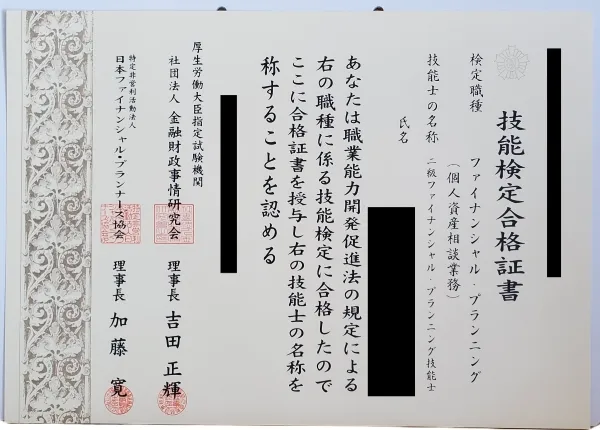 技能検定合格証書
検定職種 ファイナンシャル・プランニング
（個人資産相談業務）
技能士の名称 二級ファイナンシャル・プランニング技能士
氏名
あなたは職業能力開発促進法の規定による
右の職種に係る技能検定に合格したので
ここに合格証書を授与し右の技能士の名称を
称することを認める
厚生労働大臣指定試験機関
社団法人 金融財政事情研究会 理事長 吉田 正輝
特定非営利活動法人
日本ファイナンシャル・プランナーズ協会 理事長 加藤 寛